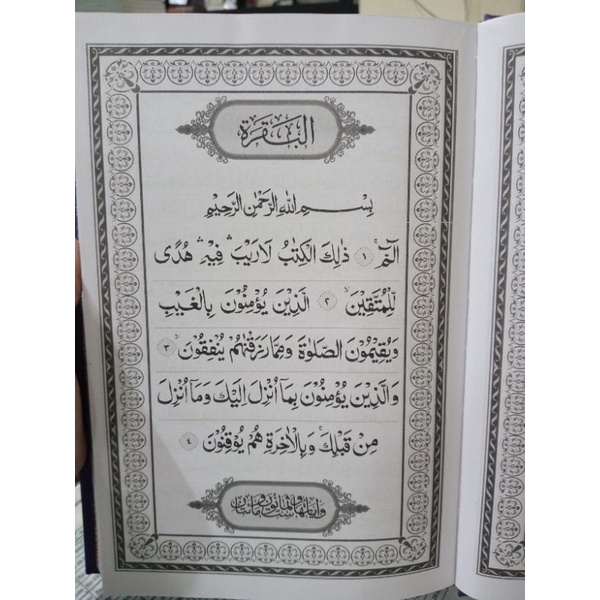 البقرة
بِسْمِ اللّٰهِ الرَّحْمٰنِ الرَّحِيْمِ
الۤمّۤ ۚ ١ ذٰلِكَ الْكِتٰبُ لَا رَيْبَ ۛ فِيْهِ ۛ هُدًى
لِّلْمُتَّقِيْنَ ۙ ٢ الَّذِيْنَ يُؤْمِنُوْنَ بِالْغَيْبِ
وَيُقِيْمُوْنَ الصَّلٰوةَ وَمِمَّا رَزَقْنٰهُمْ يُنْفِقُوْنَ ۙ ٣
وَالَّذِيْنَ يُؤْمِنُوْنَ بِمَآ اُنْزِلَ اِلَيْكَ وَمَآ اُنْزِلَ
مِنْ قَبْلِكَ ۚ وَبِالْاٰخِرَةِ هُمْ يُوْقِنُوْنَ ٤
وآياتها مائتان وست وثمانون